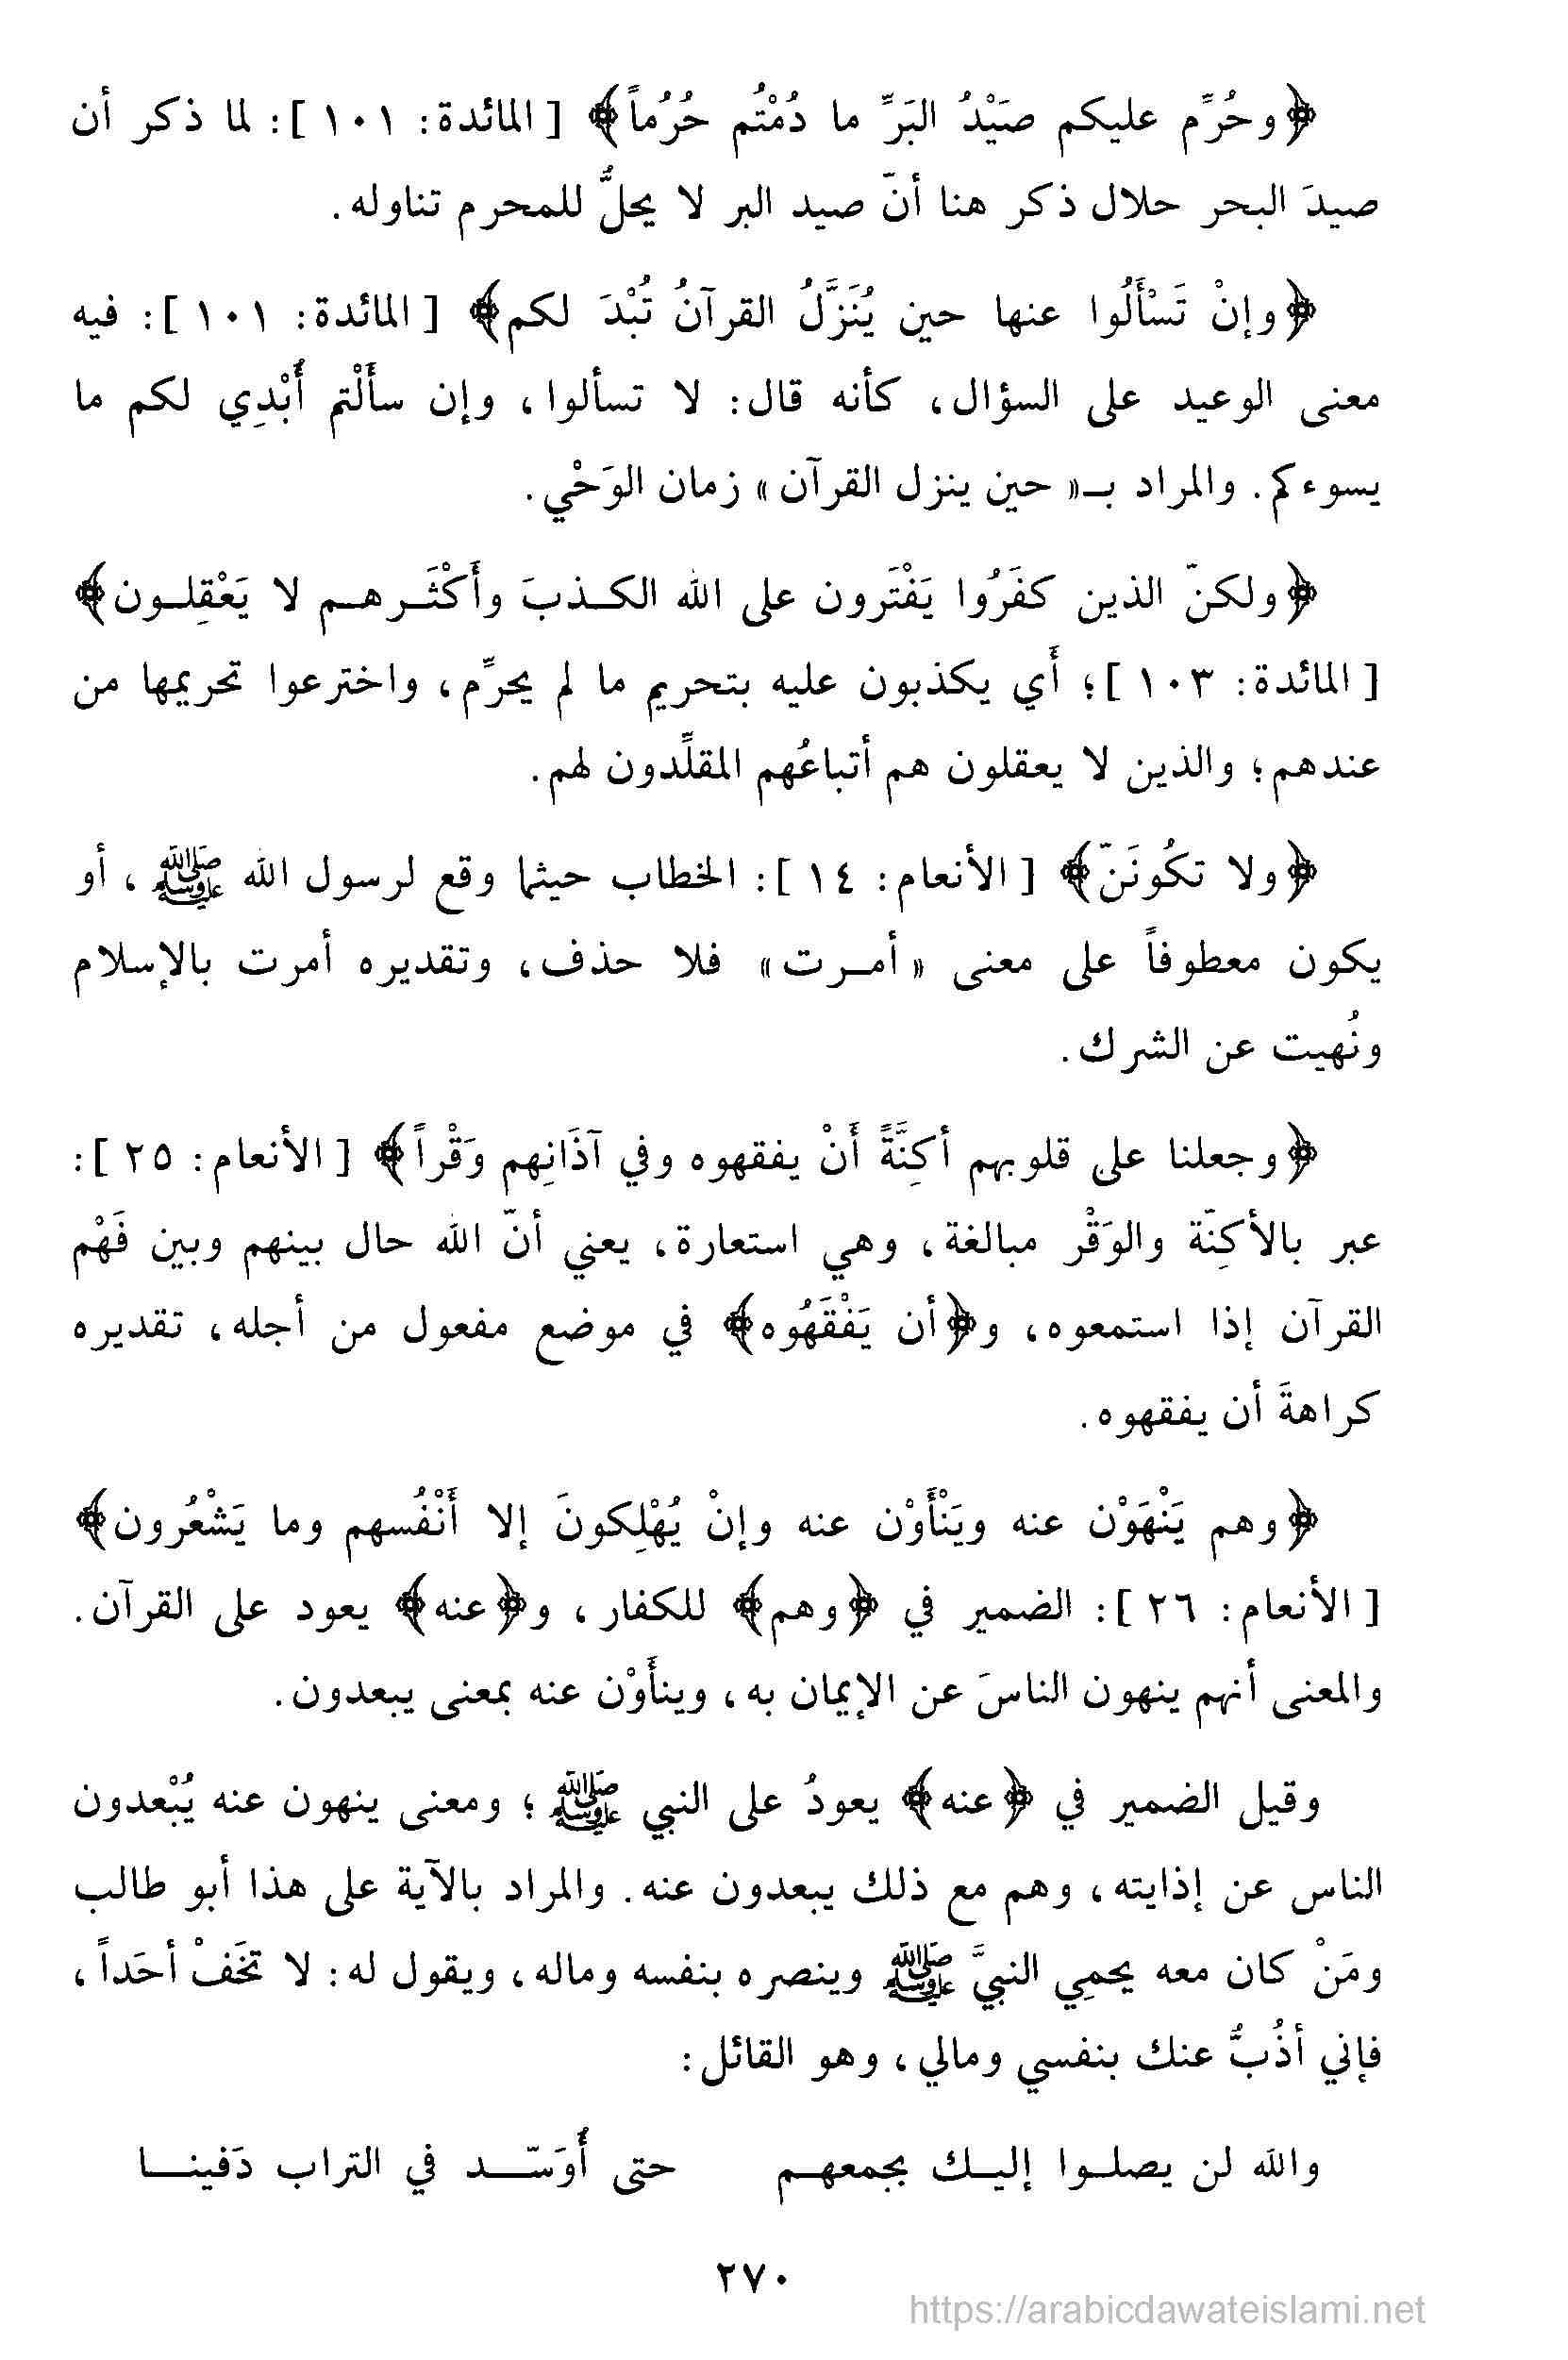 ﴿وحُرِّم عليكم صَيْدُ البَرِّ ما دُمْتُم حُرُماً﴾ [ المائدة: ١٠١ ]: لما ذكر أن
صيدَ البحر حلال ذكر هنا أنّ صيد البر لا يحلُّ للمحرم تناوله.
﴿وإنْ تَسْأَلُوا عنها حين يُنَزَّلُ القرآنُ تُبْدَ لكم﴾ [ المائدة: ١٠١ ]: فيه
معنى الوعيد على السؤال، كأنه قال: لا تسألوا، وإن سأَلْتم أُبْدِي لكم ما
يسوءكم. والمراد بـ« حين ينزل القرآن » زمان الوَحْي.
﴿ولكنّ الذين كفَرُوا يَفْتَرون على الله الكـذبَ وأَكْثَـرهـم لا يَعْقِلـون﴾
[ المائدة: ١٠٣ ]؛ أَي يكذبون عليه بتحريم ما لم يحرِّم، واخترعوا تحريمها من
عندهم؛ والذين لا يعقلون هم أتباعُهم المقلِّدون لهم.
﴿ولا تكُونَنّ﴾ [ الأنعام: ١٤ ]: الخطاب حيثما وقع لرسول الله ﷺ ، أو
يكون معطوفاً على معنى « أمـرت » فلا حذف، وتقديره أمرت بالإسلام
ونُهيت عن الشرك.
﴿وجعلنا على قلوبهم أكِنَّةً أَنْ يفقهوه وفي آذَانِهم وَقْراً﴾ [ الأنعام: ٢٥ ]:
عبر بالأكِنّة والوَقْر مبالغة، وهي استعارة، يعني أنّ الله حال بينهم وبين فَهْم
القرآن إذا استمعوه، و﴿أن يَفْقَهُوه﴾ في موضع مفعول من أجله، تقديره
كراهةَ أن يفقهوه.
﴿وهم يَنْهَوْن عنه ويَنْأَوْن عنه وإنْ يُهْلِكونَ إلا أَنْفُسهم وما يَشْعُرون﴾
[ الأنعام: ٢٦ ]: الضمير في ﴿وهم﴾ للكفار، و﴿عنه﴾ يعود على القرآن.
والمعنى أنهم ينهون الناسَ عن الإيمان به، وينأَوْن عنه بمعنى يبعدون.
وقيل الضمير في ﴿عنه﴾ يعودُ على النبي ﷺ ؛ ومعنى ينهون عنه يُبْعدون
الناس عن إذايته، وهم مع ذلك يبعدون عنه. والمراد بالآية على هذا أبو طالب
ومَنْ كان معه يحمِي النبيَّ ﷺ وينصره بنفسه وماله، ويقول له: لا تخَفْ أحَداً،
فإني أذُبُّ عنك بنفسي ومالي، وهو القائل:
والله لن يصلـوا إليـك بجمعهـم حتى أُوَسّـد في التراب دَفينـا
٢٧٠
https://arabicdawateislami.net